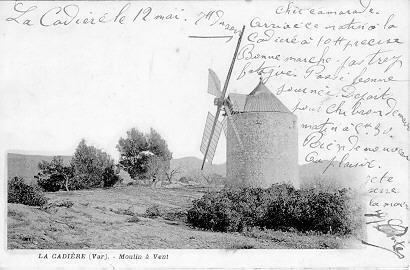 La Cadière le 12 mai.
Cher camarade
Arrivée ce matin à la
Cadière à 10H precise
Bonne marche pas trop
fatigué Passé bonne
journée. Depart
pour
demain
matin à
Rien de nouveau
Complaisir.
Je te
serre
la main
LA CADIÈRE (Var). - Moulin à Vent